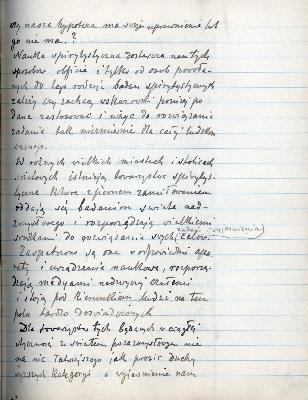 czy nasza hypoteza ma swoje uprawnienie lub
go nie ma?
Nauka spirytystyczna dostarcza nam tych
sposobów obficie i tylko od osób powoła-
nych do tego rodzaju badań spirytystycznych
zależy czy zechcą wskazówki poniżej po
dane zastosować i wziąć do rozwiązania
zadania tak niezmiernie dla całej ludzkości
ważnego.
W różnych wielkich miastach i stolicach
istnieją towarzystwa spirysty-
styczne które z pewnem zamiłowaniem
oddają się badaniom świata nad-
zmysłowego i rozporządzają wielkiemi
środkami do rozwiązania swych celów.
zadań (wyjaśnienia)
Zaopatrzone są one w odpowiednie apa-
raty i urządzenia naukowe, rozporzą-
dzają medyami nadzwyczaj czułemi
i stoją pod kierunkiem ludzi na tem
polu bardzo doświadczonych
Dla towarzystw tych będących w ciągłej
styczności z światem pozazmysłowym nie
ma nic łatwiejszego jak prosić duchy
wyższych kategoryi o wyjaśnienie nam